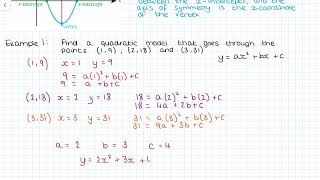 x-intercept x-intercept
vertex
between the x-intercepts, and the
axis of symmetry is the x-coordinate
of the vertex
Example 1: Find a quadratic model that goes through the
points (1,9), (2,18) and (3,31)
y = ax² + bx + c
(1,9) x = 1 y = 9
9 = a(1)² + b(1) + c
9 = a + b + c
(2,18) x = 2 y = 18 18 = a(2)² + b(2) + c
18 = 4a + 2b + c
(3,31) x = 3 y = 31 31 = a(3)² + b(3) + c
31 = 9a + 3b + c
a = 2 b = 3 c = 4
y = 2x² + 3x +